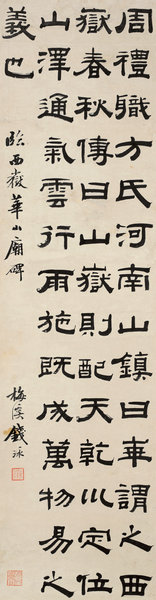 周禮職方氏河南山鎮曰華謂之西
嶽春秋傳曰山嶽則配天乾以定位
山澤通氣雲行雨施既成萬物易之
義也
臨西嶽華山廟碑
梅溪錢泳